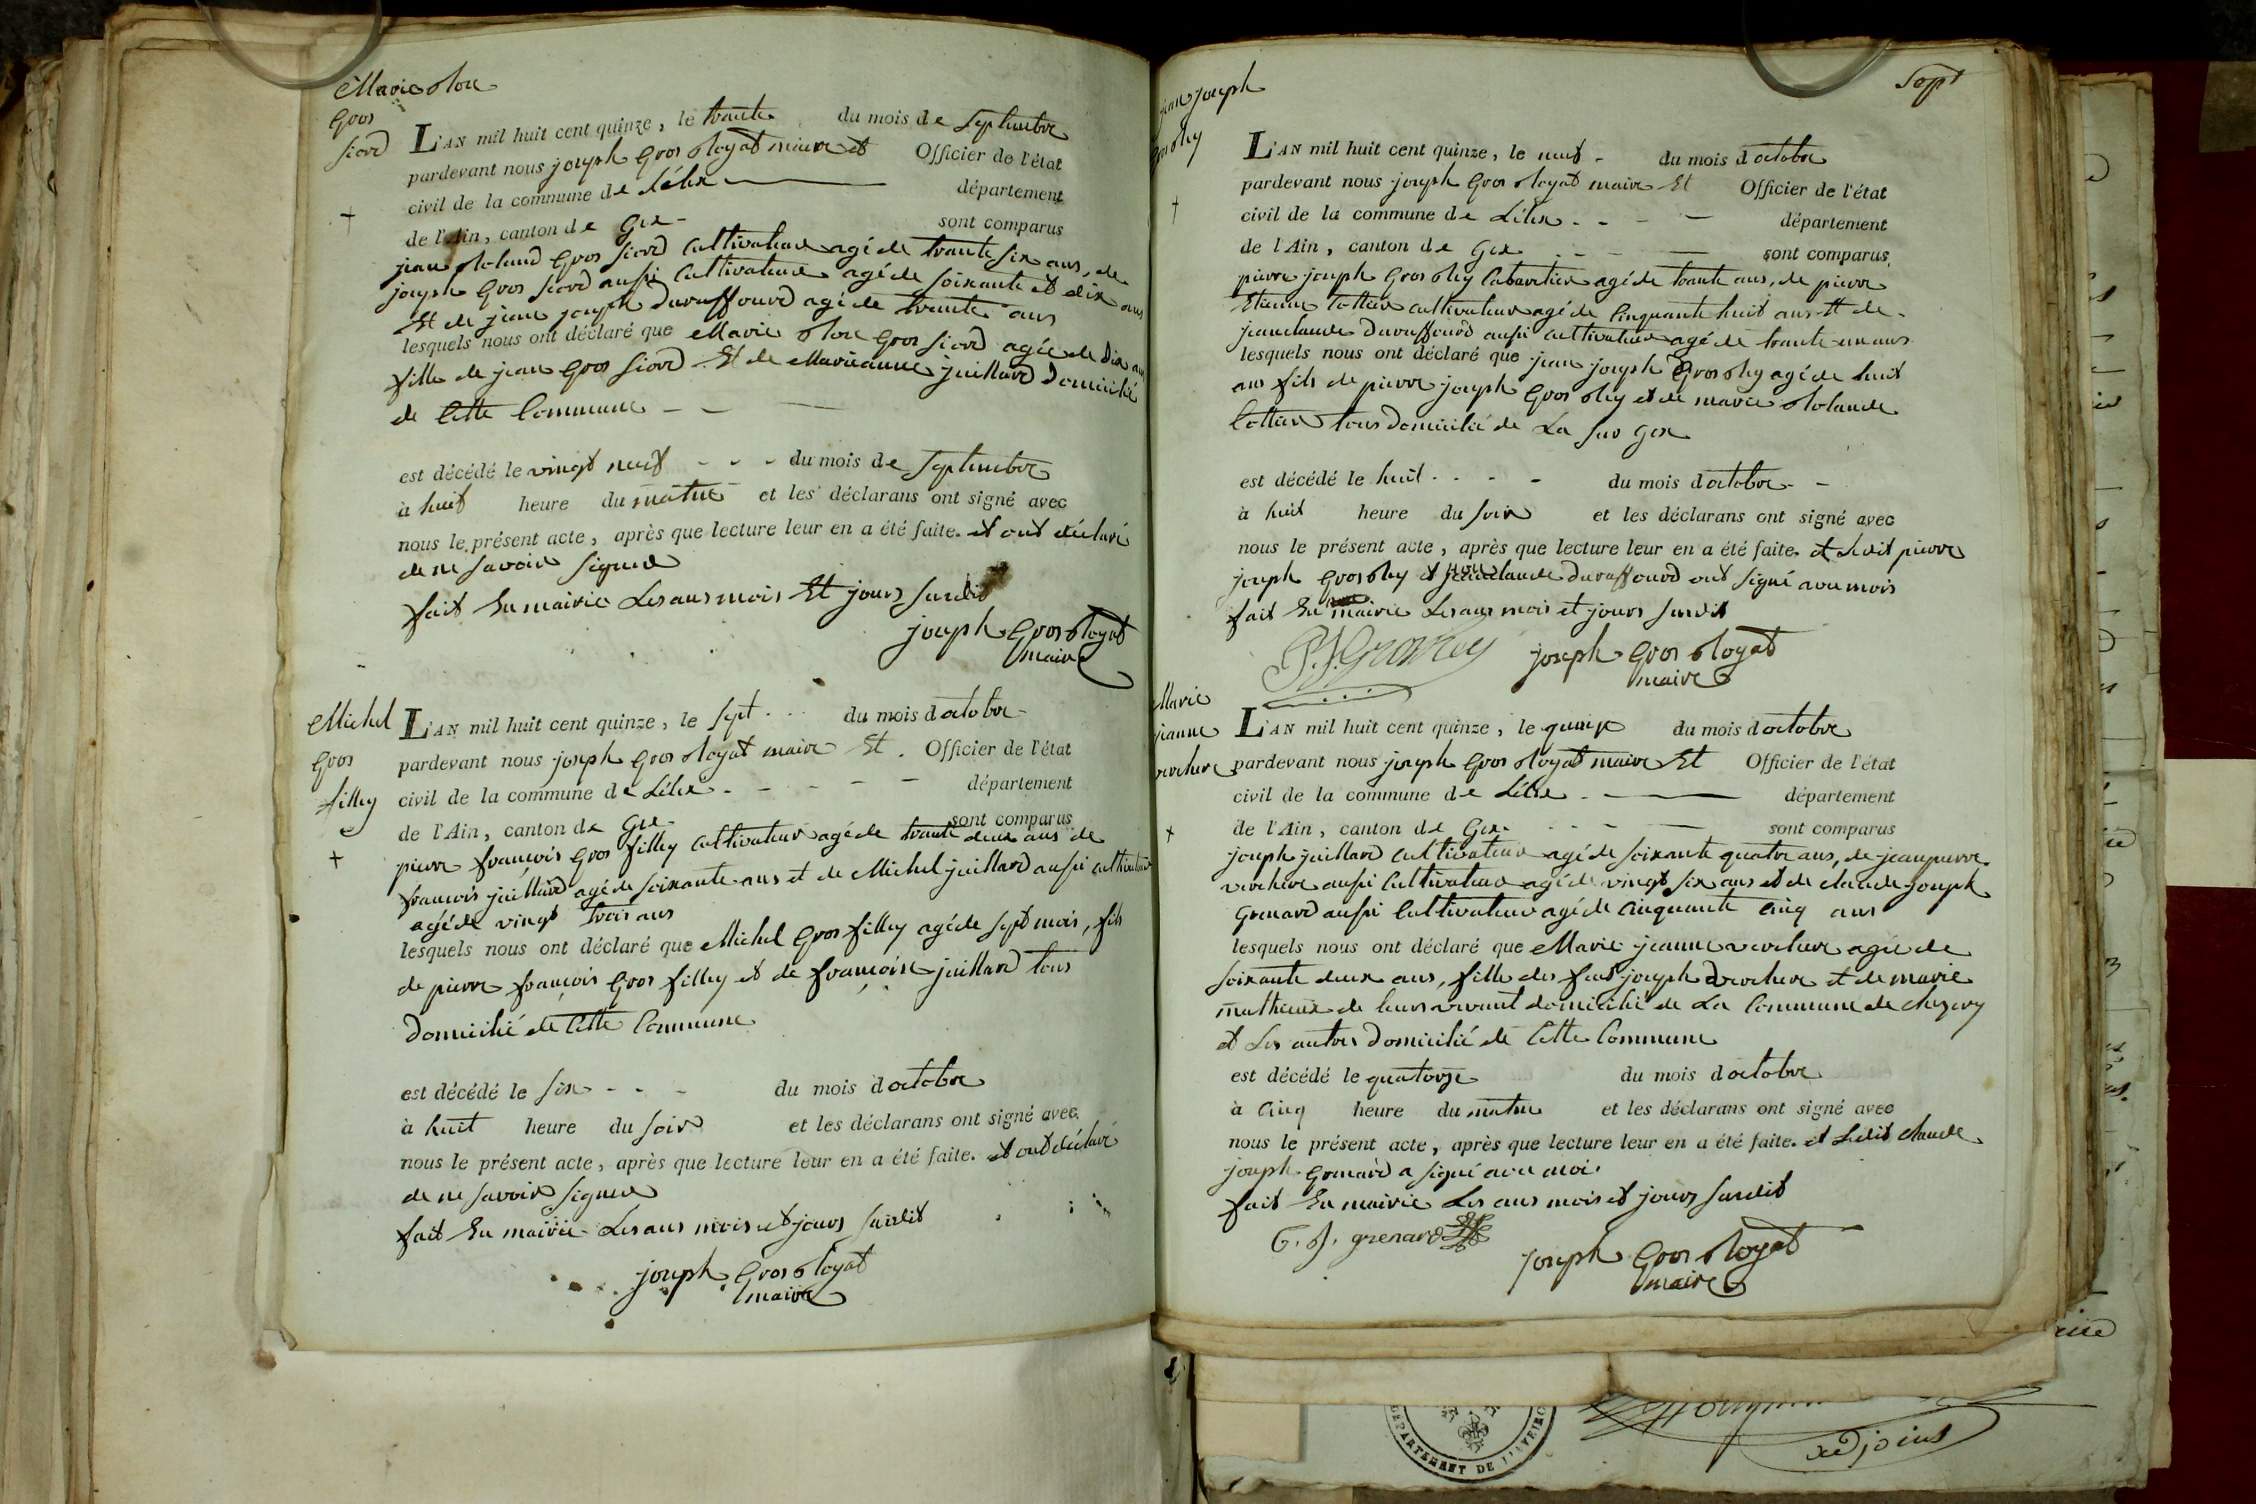 Marie Rose
Gros
Siord
L'AN mil huit cent quinze, le trante du mois de Septembre
pardevant nous joseph Gros Royat maire et Officier de l'état
civil de la commune de Lélex département
de l'Ain, canton de Gex - sont comparus
jean Roland Gros Siord Cultivateur agé de trante six ans, de
joseph Gros Siord aussi Cultivateur agé de soixante et dix ans
Et de jean joseph Duraffourd agé de trante ans
lesquels nous ont déclaré que Marie Rose Gros Siord agée de Dix ans
fille de jean Gros Siord Et de Marieanne juillard domicilié
de Cette Commune - -
est décédé le vingt neuf - - - du mois de Septembre
à huit heure du matin et les déclarans ont signé avec
nous le présent acte, après que lecture leur en a été faite. et ont déclaré
de ne savoir signer
fait En mairie Les ans mois Et jours susdit
joseph Gros Royat
maire
Michel
Gros
filley
L'AN mil huit cent quinze, le sept du mois d octobre
pardevant nous joseph Gros Royat maire Et Officier de l'état
civil de la commune de Lélex - - - - département
de l'Ain, canton de Gex - sont comparus
pierre françois Gros filley Cultivateur agé de trante deux ans de
francois juillard agé de soixante ans et de Michel juillard aussi cultivateur
agé de vingt trois ans
lesquels nous ont déclaré que Michel Gros filley agé de sept mois, fils
de pierre françois Gros filley et de françoise juillard tous
Domicilié de Cette Commune
est décédé le six - - - du mois d octobre
à huit heure du soir et les déclarans ont signé avec
nous le présent acte, après que lecture leur en a été faite. et ont déclaré
de ne savoir signer
fait En mairie Les ans mois et jours susdit
joseph Gros Royat
maire
Sept
jean joseph
L'AN mil huit cent quinze, le neuf - du mois d octobre
pardevant nous joseph Gros Royat maire Et Officier de l'état
civil de la commune de Lélex - - - département
de l'Ain, canton de Gex - - - sont comparus
pierre joseph Gros Rey Cabaretier agé de trante ans, de pierre
Etienne Cottier cultivateur agé de Cinquante huit ans Et de
jeanclaude Duraffourd aussi Cultivateur agé de trante un ans
lesquels nous ont déclaré que jean joseph Gros Rey agé de huit
ans fils de pierre joseph Gros Rey et de marie Rolande
Cottier tous Domicilié de
est décédé le huit - - - - du mois d octobre - -
à huit heure du soir et les déclarans ont signé avec
nous le présent acte, après que lecture leur en a été faite. et Ledit pierre
joseph Gros Rey et jeanclaude Duraffourd ont signé avec
fait En mairie Les ans mois et jours susdit
P. J. Gros Rey
joseph Gros Royat
maire
Marie
jeanne
L'AN mil huit cent quinze, le quinze du mois d octobre
pardevant nous joseph Gros Royat maire Et Officier de l'état
civil de la commune de Lélex - département
de l'Ain, canton de Gex - - - sont comparus
joseph juillard cultivateur agé de soixante quatre ans, de jean pierre
aussi Cultivateur agé de vingt six ans et de claude joseph
Grenard aussi Cultivateur agé de cinquante cinq ans
lesquels nous ont déclaré que Marie jeanne agée de
soixante deux ans, fille des feus joseph et de marie
de leurs vivant domicilié de La Commune de chezery
et Les autres Domicilié de Cette Commune
est décédé le quatorze du mois d octobre
à cinq heure du matin et les déclarans ont signé avec
nous le présent acte, après que lecture leur en a été faite. et Ledit claude
joseph Grenard a signé avec moi
fait En mairie Les ans mois et jours susdit
C. J. grenard
joseph Gros Royat
maire
DÉPARTEMENT DE
adjoint